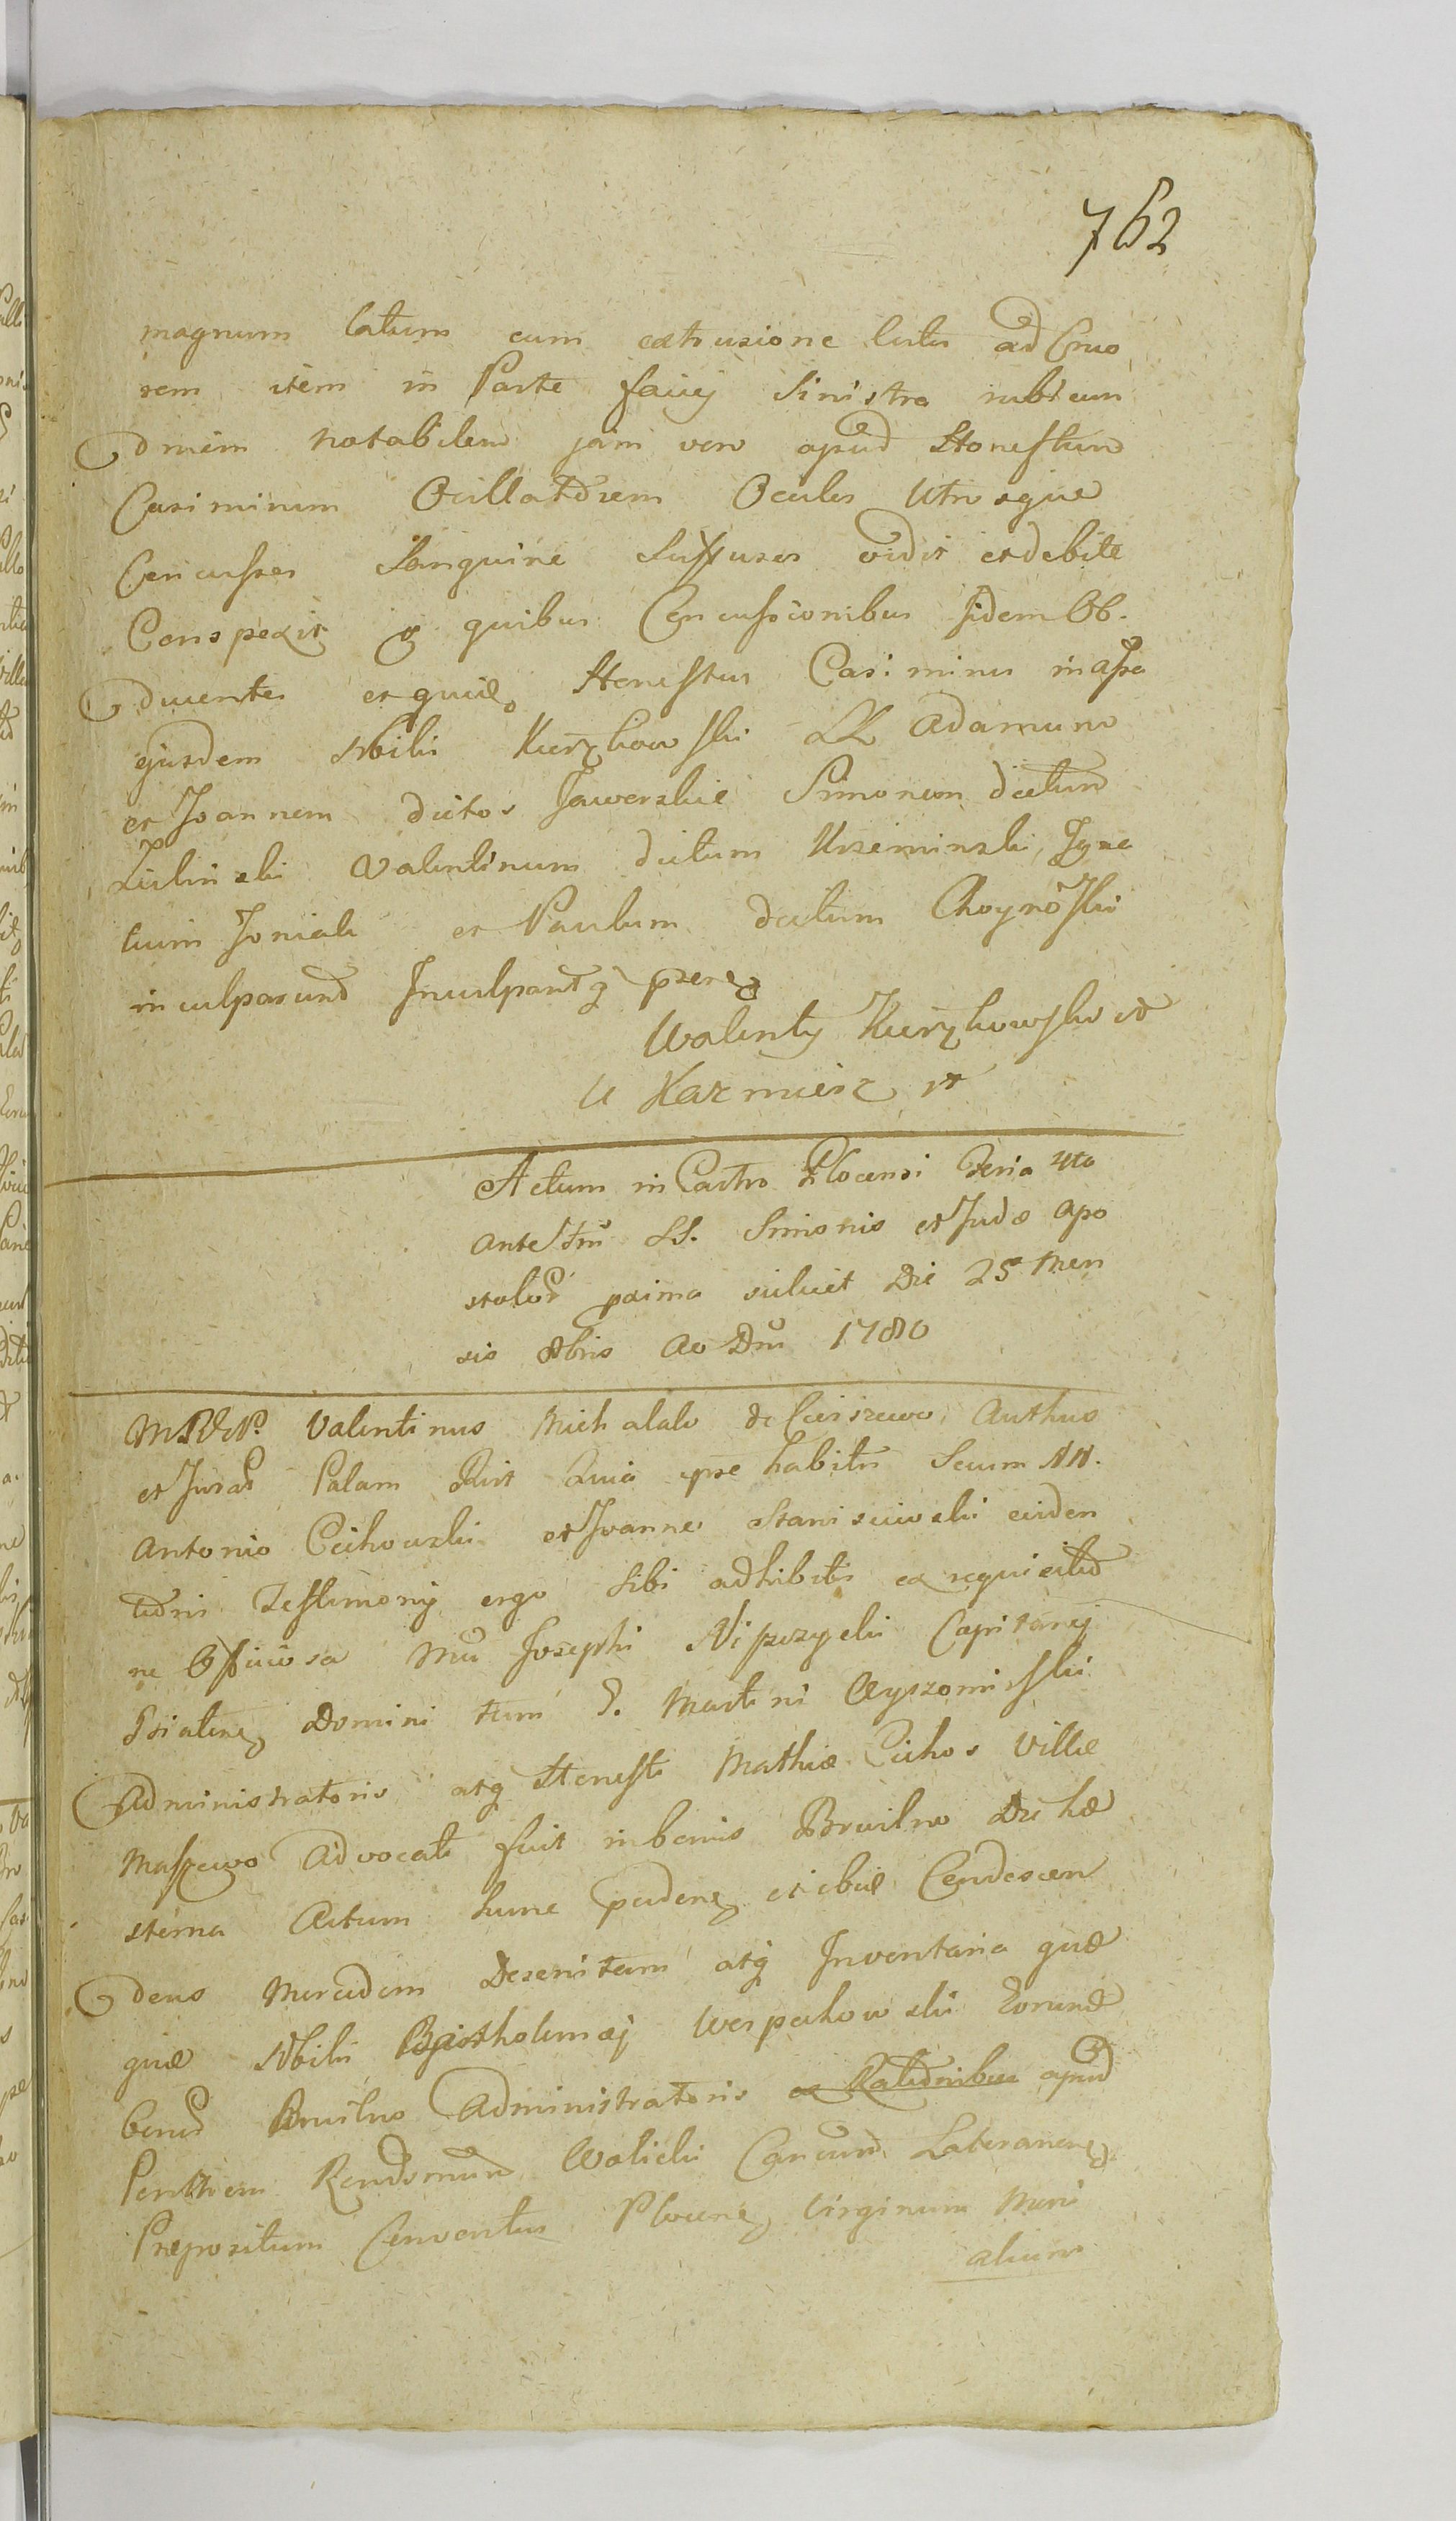 762
magnum latum cum extrusione lutis ad Cruo
rem item in Parte faciej Sinistra rubicun
dniem notabilem jam vero apud Honestum
Casimirum Ocillatorem Oculos Utrosque
Concussos Sanguine Suffusos vidit et debite
Conspexit quibus Concussionibus fidem Ob.
ducentes Honestus Casimirus
ejusdem Nbilis Kurzkowski LL Adamum
et Joannem dictos Jaworskie Simonem dictum
Zulinski Valentinum dictum Krzeminski, Igna
tium Joniak et Paulum dictum Choynowski
inculparunt Inculpantq psens
Walenty Kurzkowski
U Kazmierz
Actum in Castro Plocensi Feria 4ta
ante Ftm SS. Simonis et Juda Apo
stolor prima scilicet Die 25 Men
sis 8bris Ao Dni 1780
Valentinus Michalak de Ciszewo, Authus
et Jurat Palam Quia ipse habitis Secum NN.
Antonio Cichowski et Joanne Staniszewski eviden
tioris Testimonij ergo Sibi adhibitis ex requisitio
ne Officiosa Josephi Niszczycki Capitanej
Domini tum D. Martini Wyszomirski
Administratoris atq Honesti Mathia Cichos Villae
Maszewo Advocati fuit in bonis Brwilno Die he
sterna Actum hunc et ibid Condescen
dens Mercedem Deseritam atq Inventaria quae
quae Nbilis Bartholomaej Werpachowski Eorund
bonor Brwilno Administratoris ex Rationibus apud
Perillrem Rendsmum Wolicki Canonr Lateranens
Praepositum Conventus Plocens Virginum Moni
alium